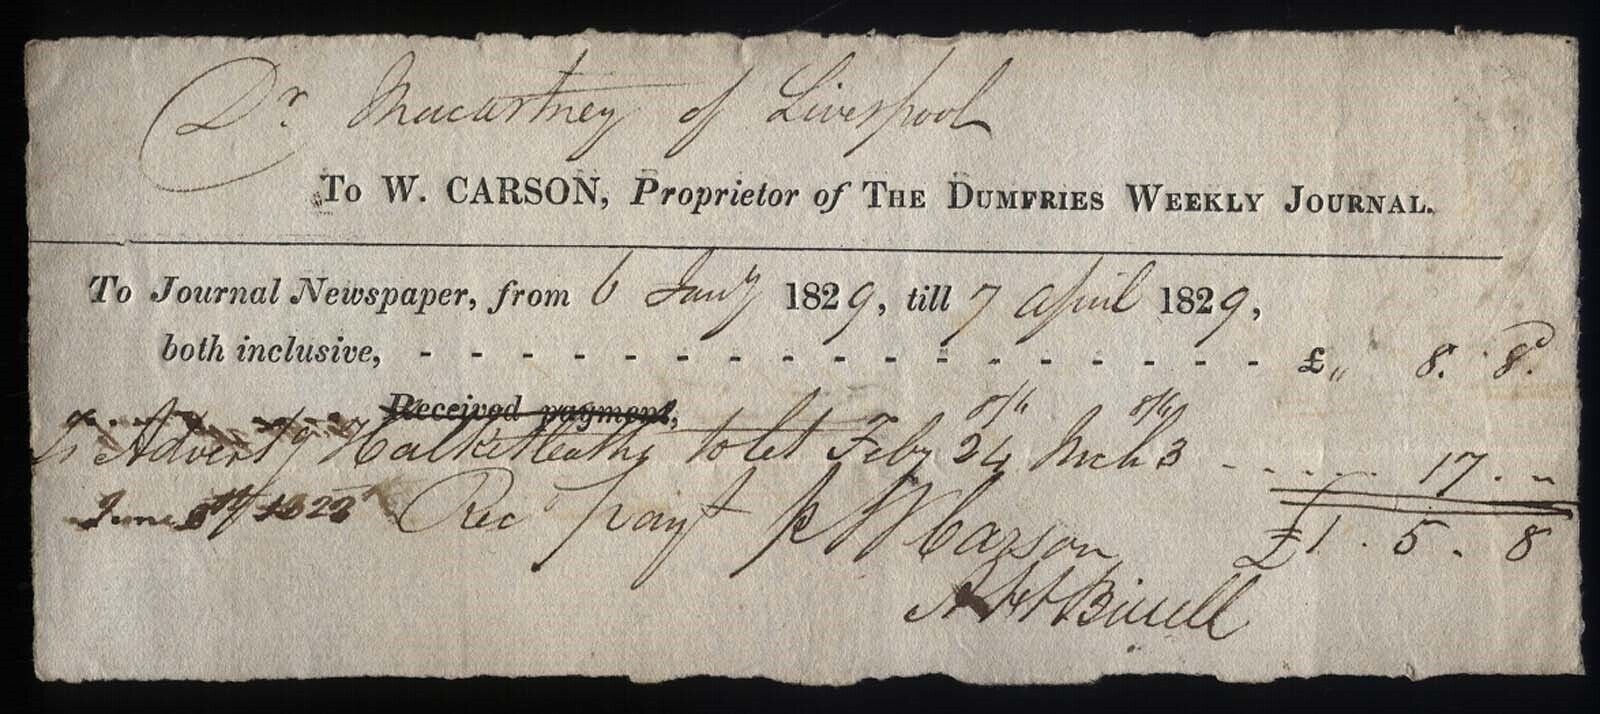 Dr Macartney of Liverpool
To W. CARSON, Proprietor of THE DUMFRIES WEEKLY JOURNAL.
To Journal Newspaper, from 6 Jany 1829, till 7 April 1829,
both inclusive, - - - - - - - - - - - - - - - - - £ „ 8. 8d.
Received payment,
8/6 8/6
To Adverts to let Feby 24 Mch 3 - - - - - 17. „
June Recd payt p W Carson £1. 5. 8
Birrell